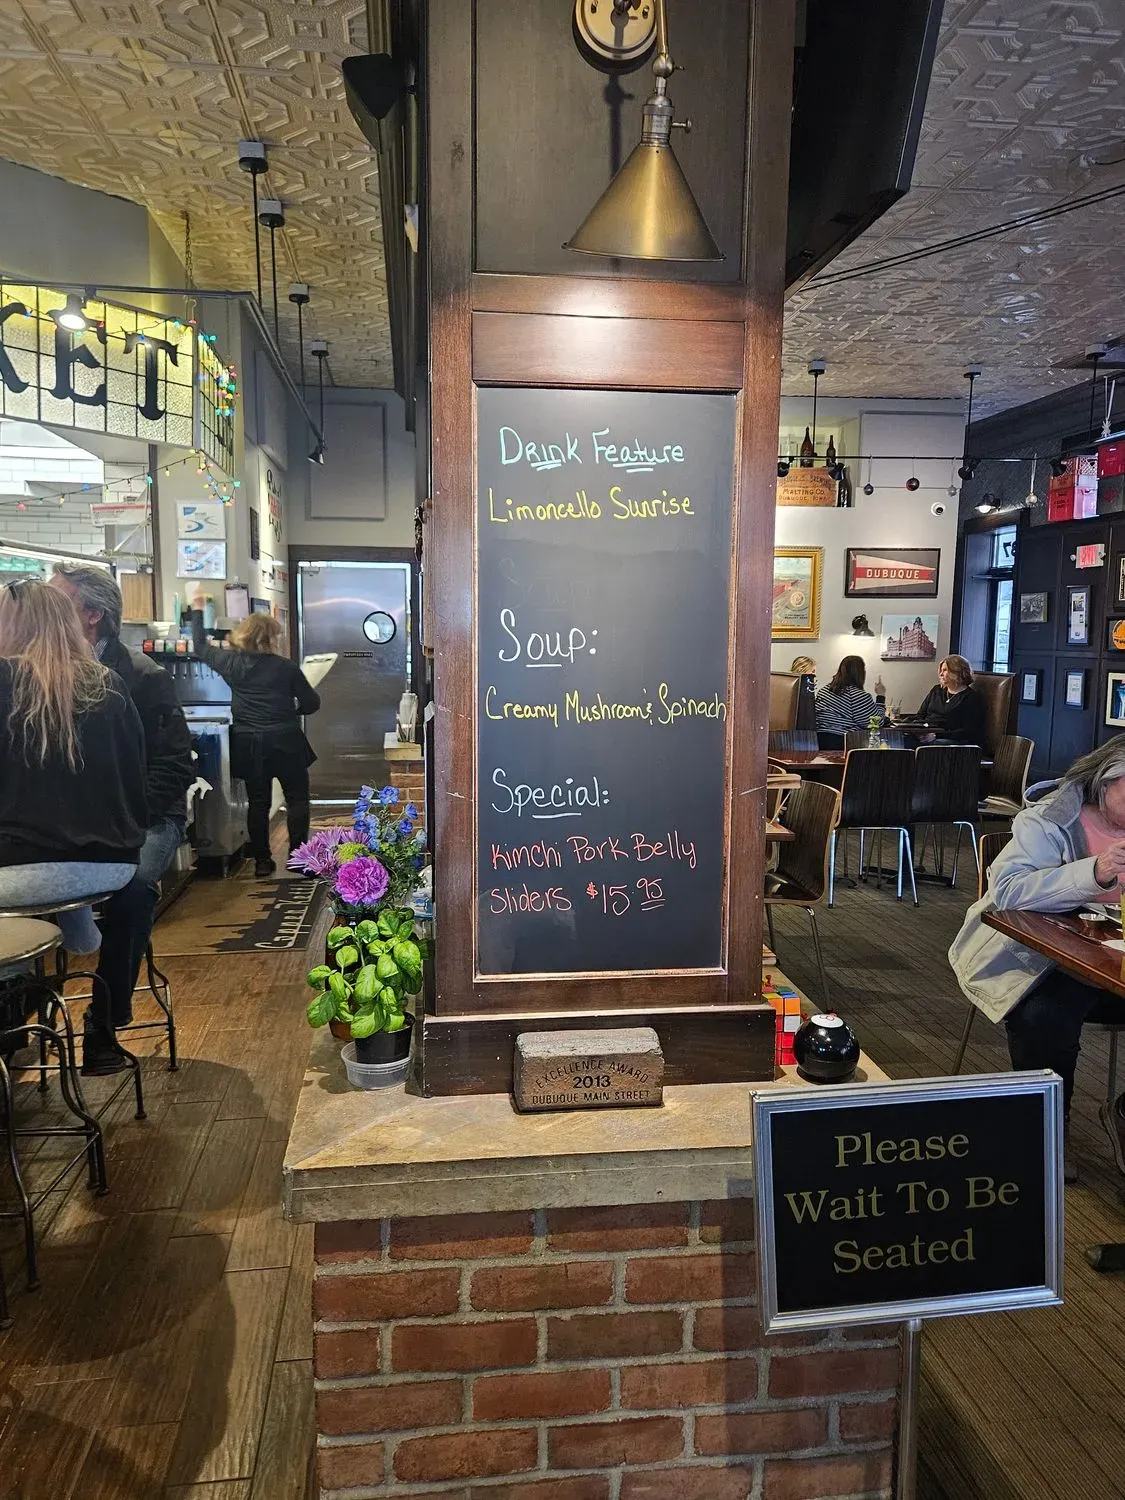 KET
Drink Feature
Limoncello Sunrise
Soup:
Creamy Mushroom & Spinach
Special:
Kimchi Pork Belly
Sliders $15.95
MALTING CO.
DUBUQUE
EXIT
EXCELLENCE AWARD
2013
DUBUQUE MAIN STREET
Please
Wait To Be
Seated